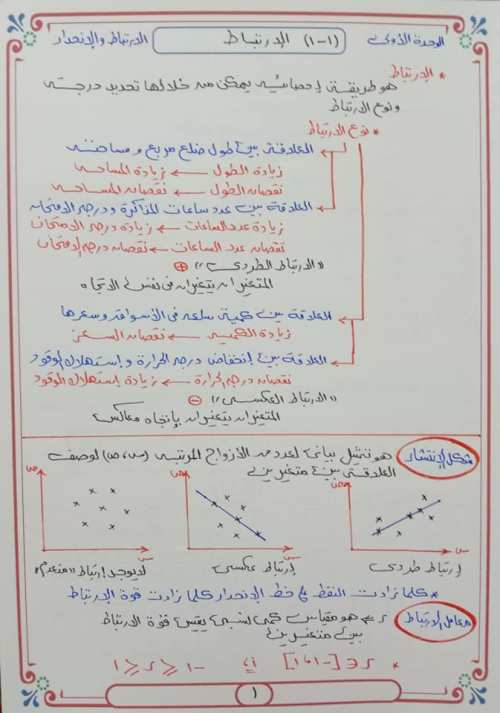 الوحدة الأولى (١-١) الإرتباط الارتباط والإنحدار
* الإرتباط
هو طريقة إحصائية يمكن من خلالها تحديد درجة
ونوع الارتباط
* نوع الارتباط
العلاقة بين طول ضلع مربع ومساحته
زيادة الطول ← زيادة المساحة
نقصان الطول ← نقصان المساحة
العلاقة بين عدد ساعات المذاكرة ودرجة الامتحان
زيادة عدد الساعات ← زيادة درجة الامتحان
نقصان عدد الساعات ← نقصان درجة الامتحان
"الارتباط الطردي" +
المتغيران يتغيران في نفس الاتجاه
العلاقة بين كمية سلعة في الأسواق وسعرها
زيادة الكمية ← نقصان السعر
العلاقة بين إنخفاض درجة الحرارة وإستهلاك الوقود
نقصان درجة الحرارة ← زيادة إستهلاك الوقود
"الارتباط العكسي" -
المتغيران يتغيران بإتجاه معاكس
شكل الإنتشار هو تمثيل بياني لعدد من الأزواج المرتبة (س، ص) لوصف
العلاقة بين متغيرين
ص ص ص
س س س
إرتباط طردي إرتباط عكسي لا يوجد إرتباط "منعدم"
* كلما زادت النقط على خط الإنحدار كلما زادت قوة الإرتباط
معامل الإرتباط ر = هو مقياس كمي نسبي يقيس قوة الارتباط
بين متغيرين
* ر ∈ [-١، ١] أي -١ ≤ ر ≤ ١
١